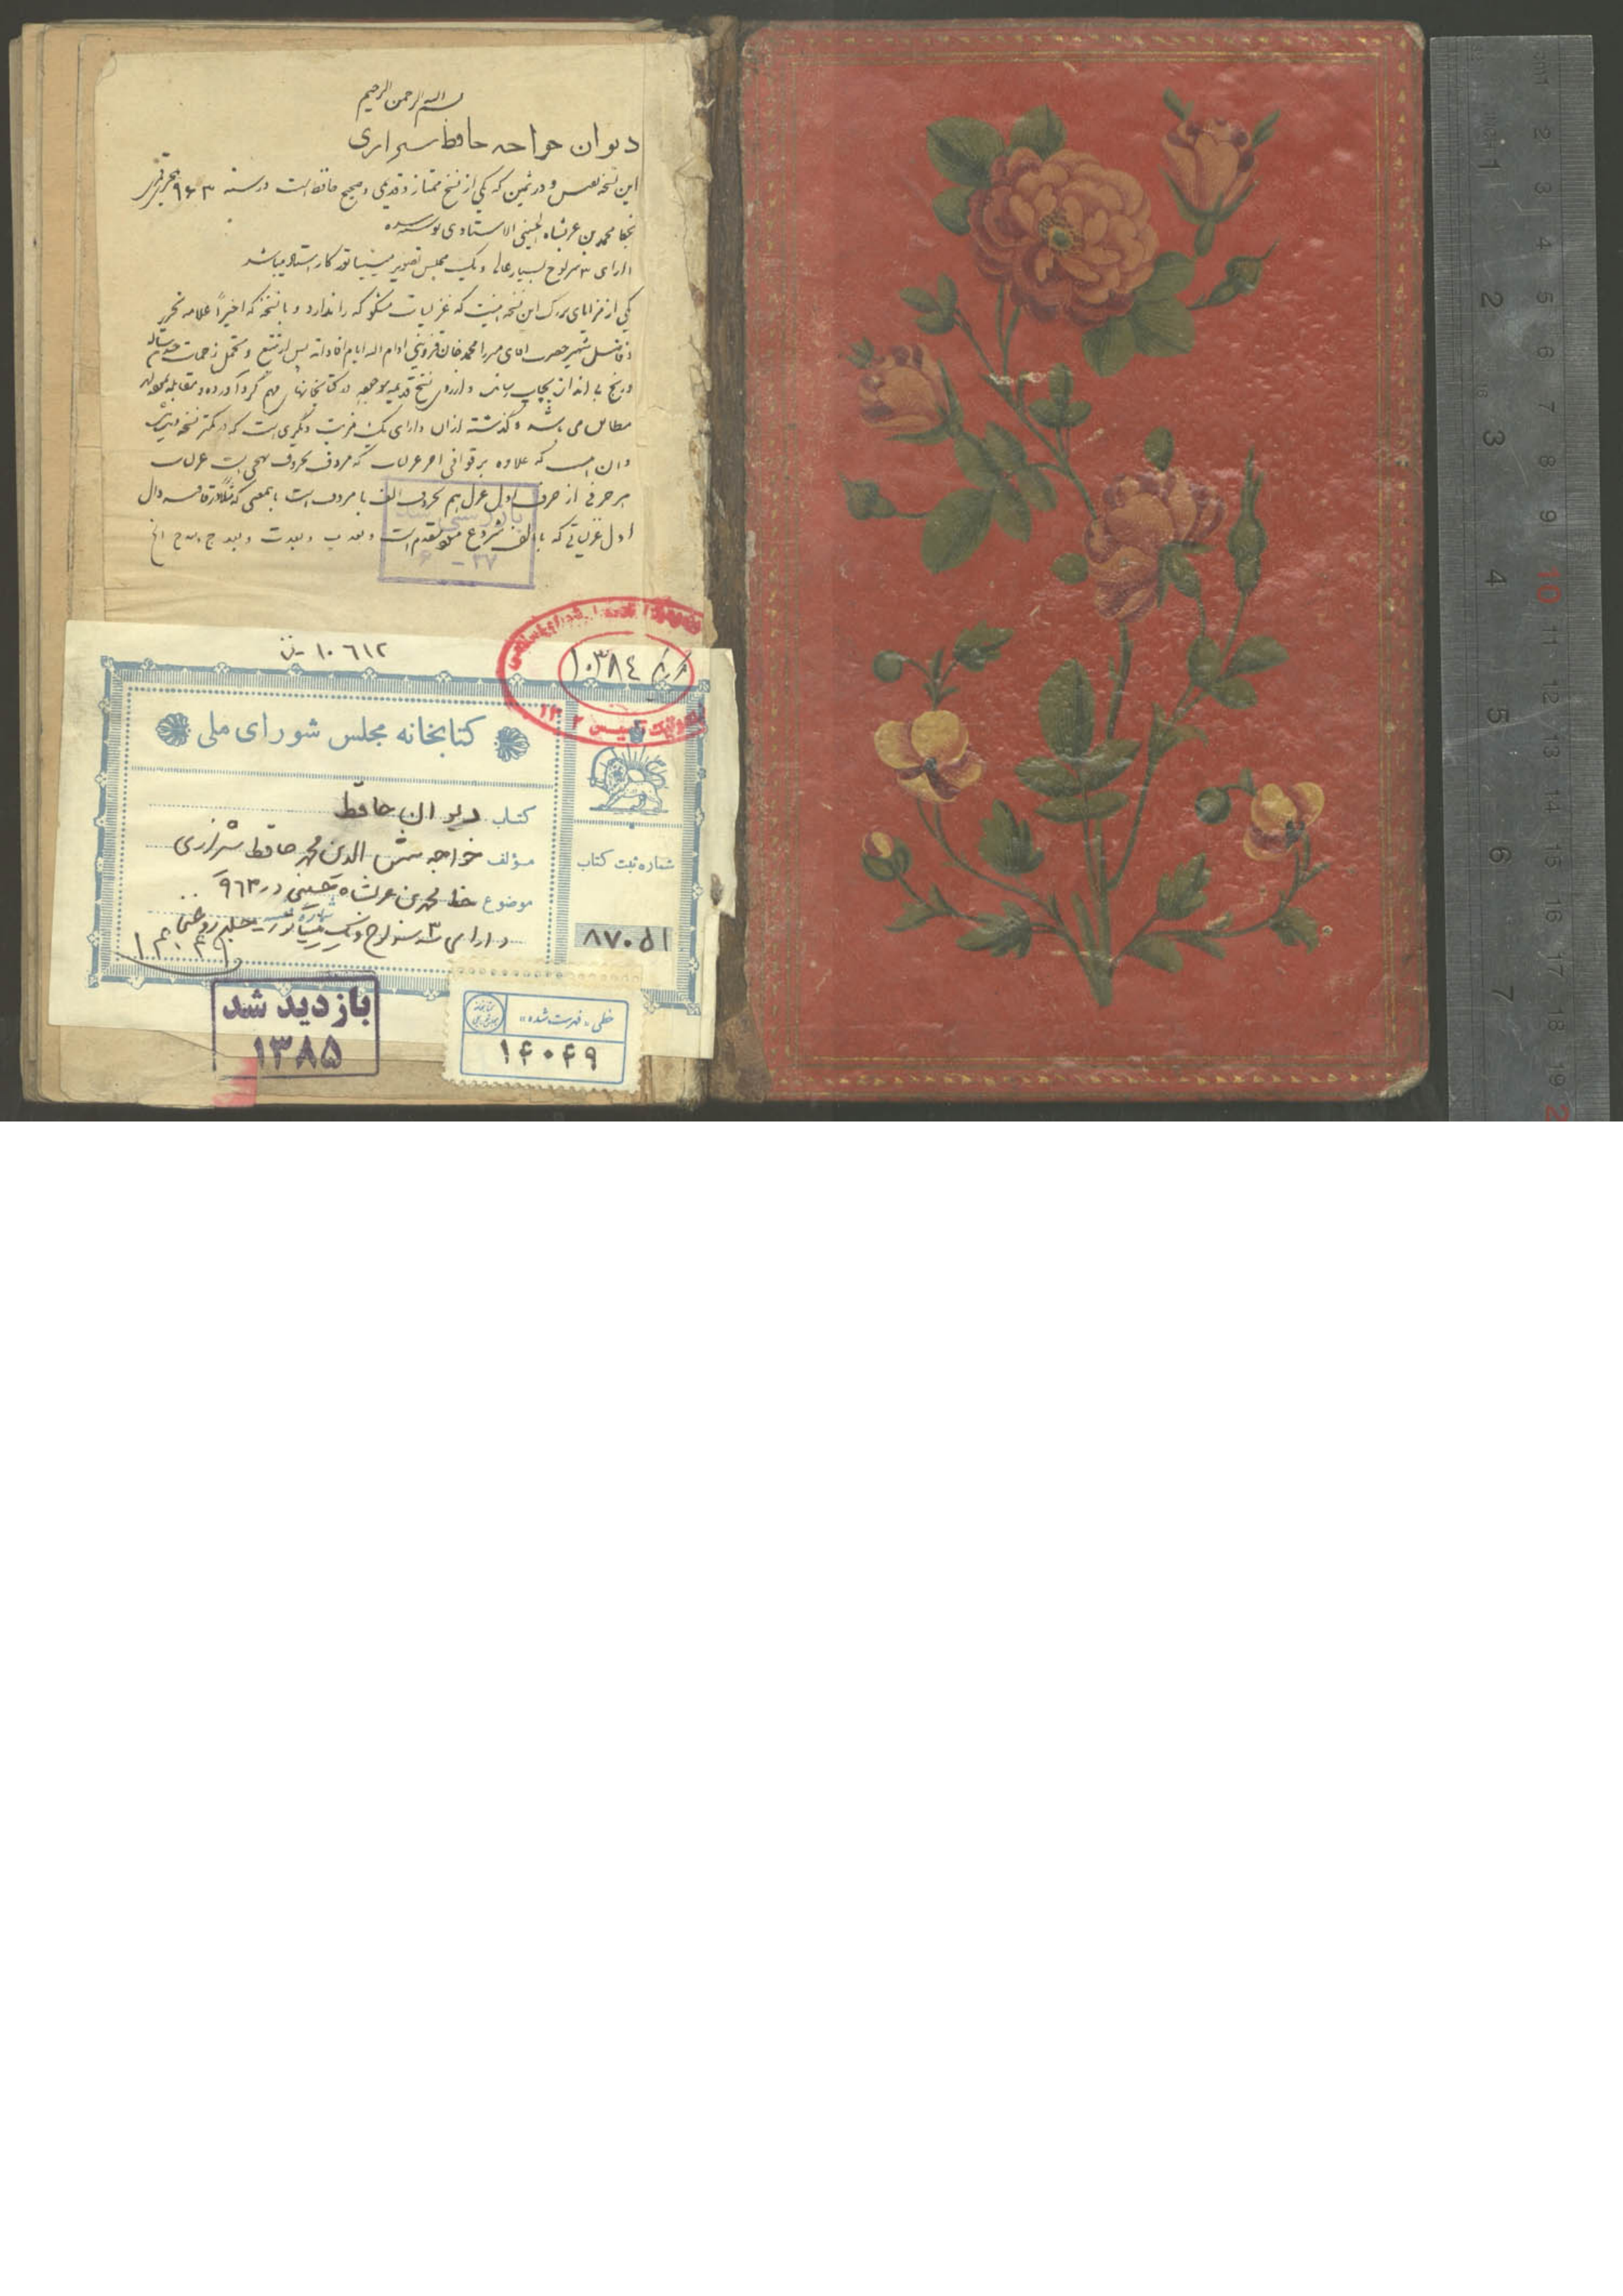 بسم الله الرحمن الرحیم
دیوان خواجه حافظ شیرازی
این نسخه نفیس و در ثمین که یکی از نسخ ممتاز و قدیمی و صحیح حافظ است در سنه ۹۶۳ هجری قمری
بخط محمد بن عربشاه الحسینی الاستادی نوشته شده
دارای ۳ سرلوح بسیار عالی و یک مجلس تصویر مینیاتور کار استاد میباشد
یکی از مزایای بزرگ این نسخه اینست که غزلیات مشکوکه را ندارد و با نسخه که اخیراً علامه نحریر
و فاضل شهیر حضرت آقای میرزا محمد خان قزوینی ادام الله ایام افاداته پس از تتبع و تحمل زحمات چند ساله
و رنج بی اندازه بچاپ رسانده و از روی نسخ قدیمه موجوده در کتابخانهای مهم گرد آورده و مقابله
مطابق می باشد و گذشته از ان دارای یک مزیت دیگری است که در کمتر نسخه
و ان اینست که علاوه بر قوافی آخر غزلیات که مردف بحروف تهجی است غزلیات
هر حرفی از حرف اول غزل هم بحروف الف با مردف است بمعنی که مثلا در قافیه دال
اول غزلیاتی که با الف شروع مقدم است و بعد ب و بعد ت و بعد ج الخ
بازرسی شد
۶ - ۳۷
۱۰۶۱۲
۱۰۳۸۴
۱۳۰۲
کتابخانه مجلس شورای ملی
کتاب دیوان حافظ
مؤلف خواجه شمس الدین محمد حافظ شیرازی
موضوع خط محمد بن عربشاه حسینی در ۹۶۳
دارای ۳ سرلوح و یک مینیاتور جلد روغنی
شماره ثبت کتاب
۸۷۰۵۱
بازدید شد
۱۳۸۵
خطی «فهرست شده»
۱۴۰۴۹
1 2 3 4 5 6 7
2 3 4 5 6 7 8 9 10 11 12 13 14 15 16 17 18 19 2